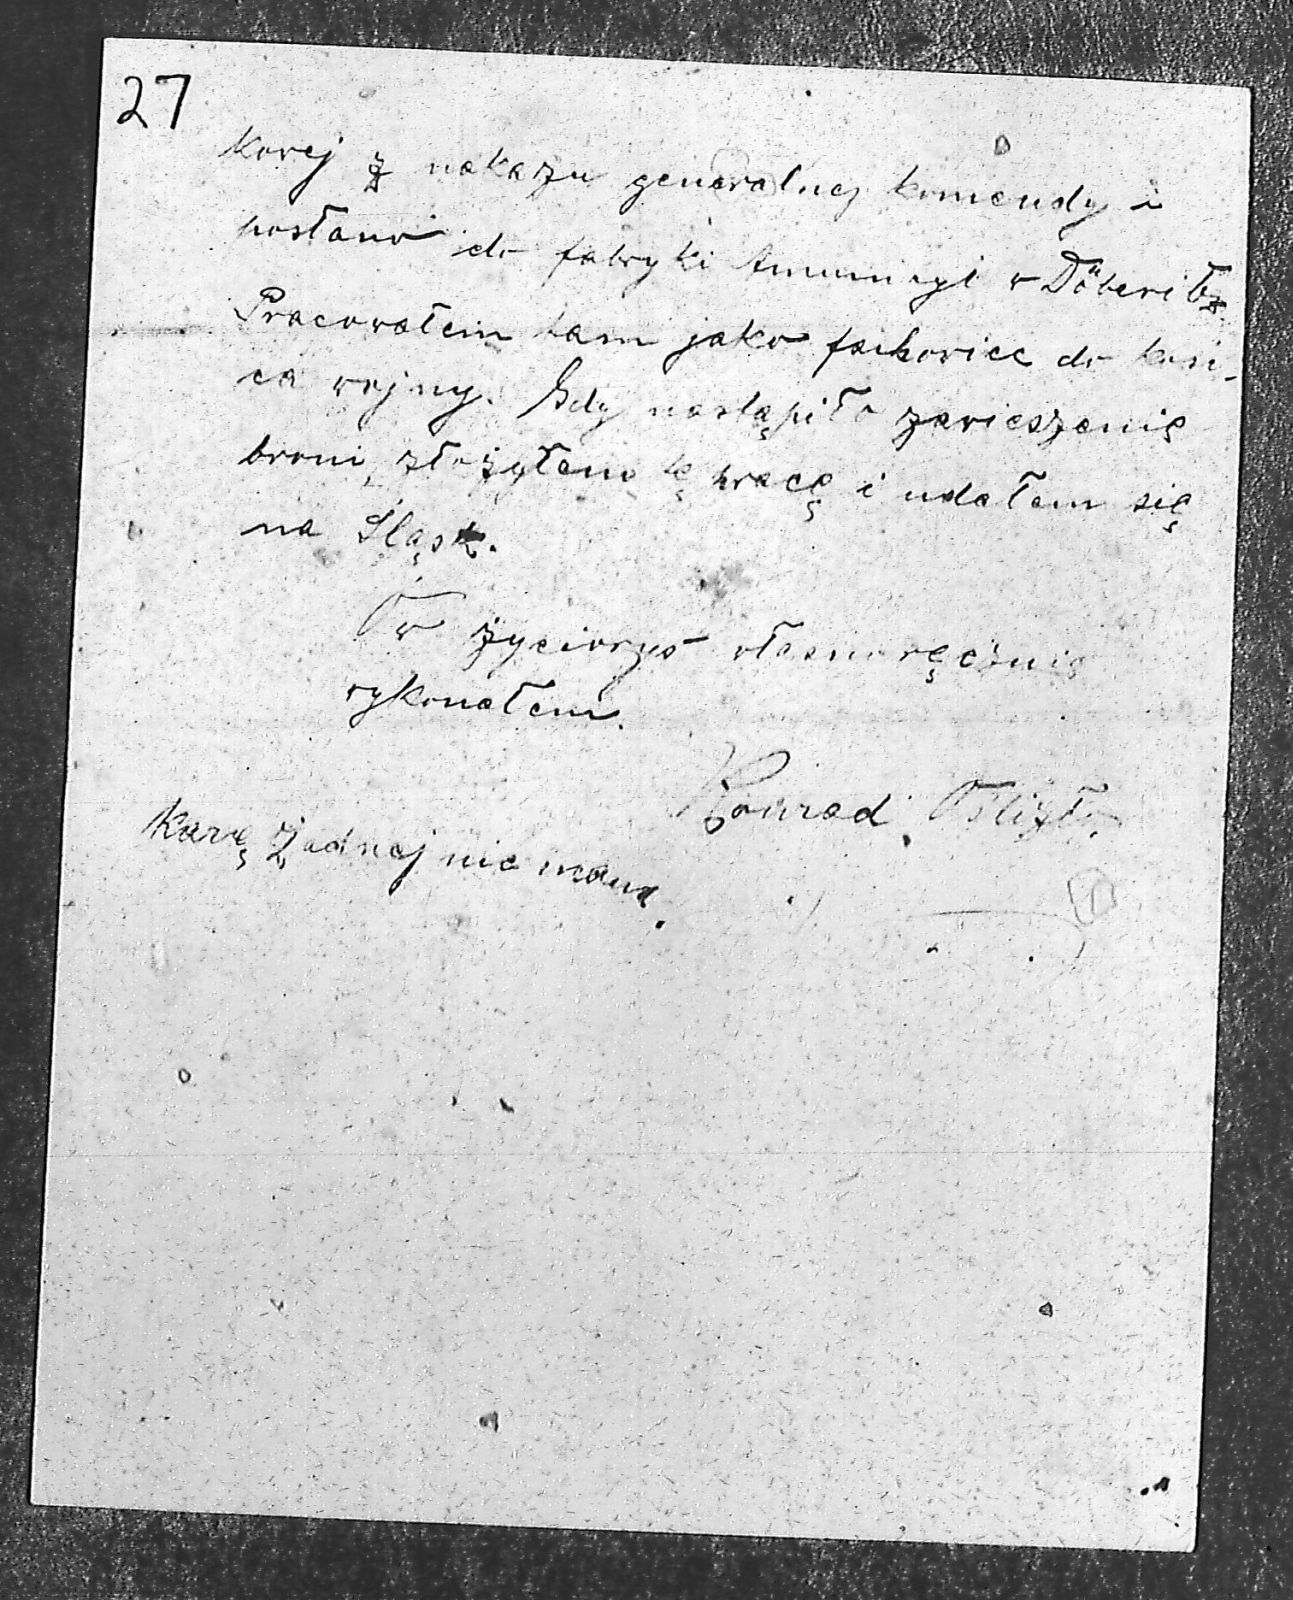 27
kowej z nakazu generalnej komendy i
posłano do fabryki Amunicyi w Döberitz
Pracowałem tam jako fachowiec do koń-
ca wojny. Gdy nastąpiło zawieszenie
broni, złożyłem tę pracę i udałem się
na Śląsk.
Ów życiorys własnoręcznie
wykonałem.
Konrad Oślizło.
Karę żadnej nie mam.